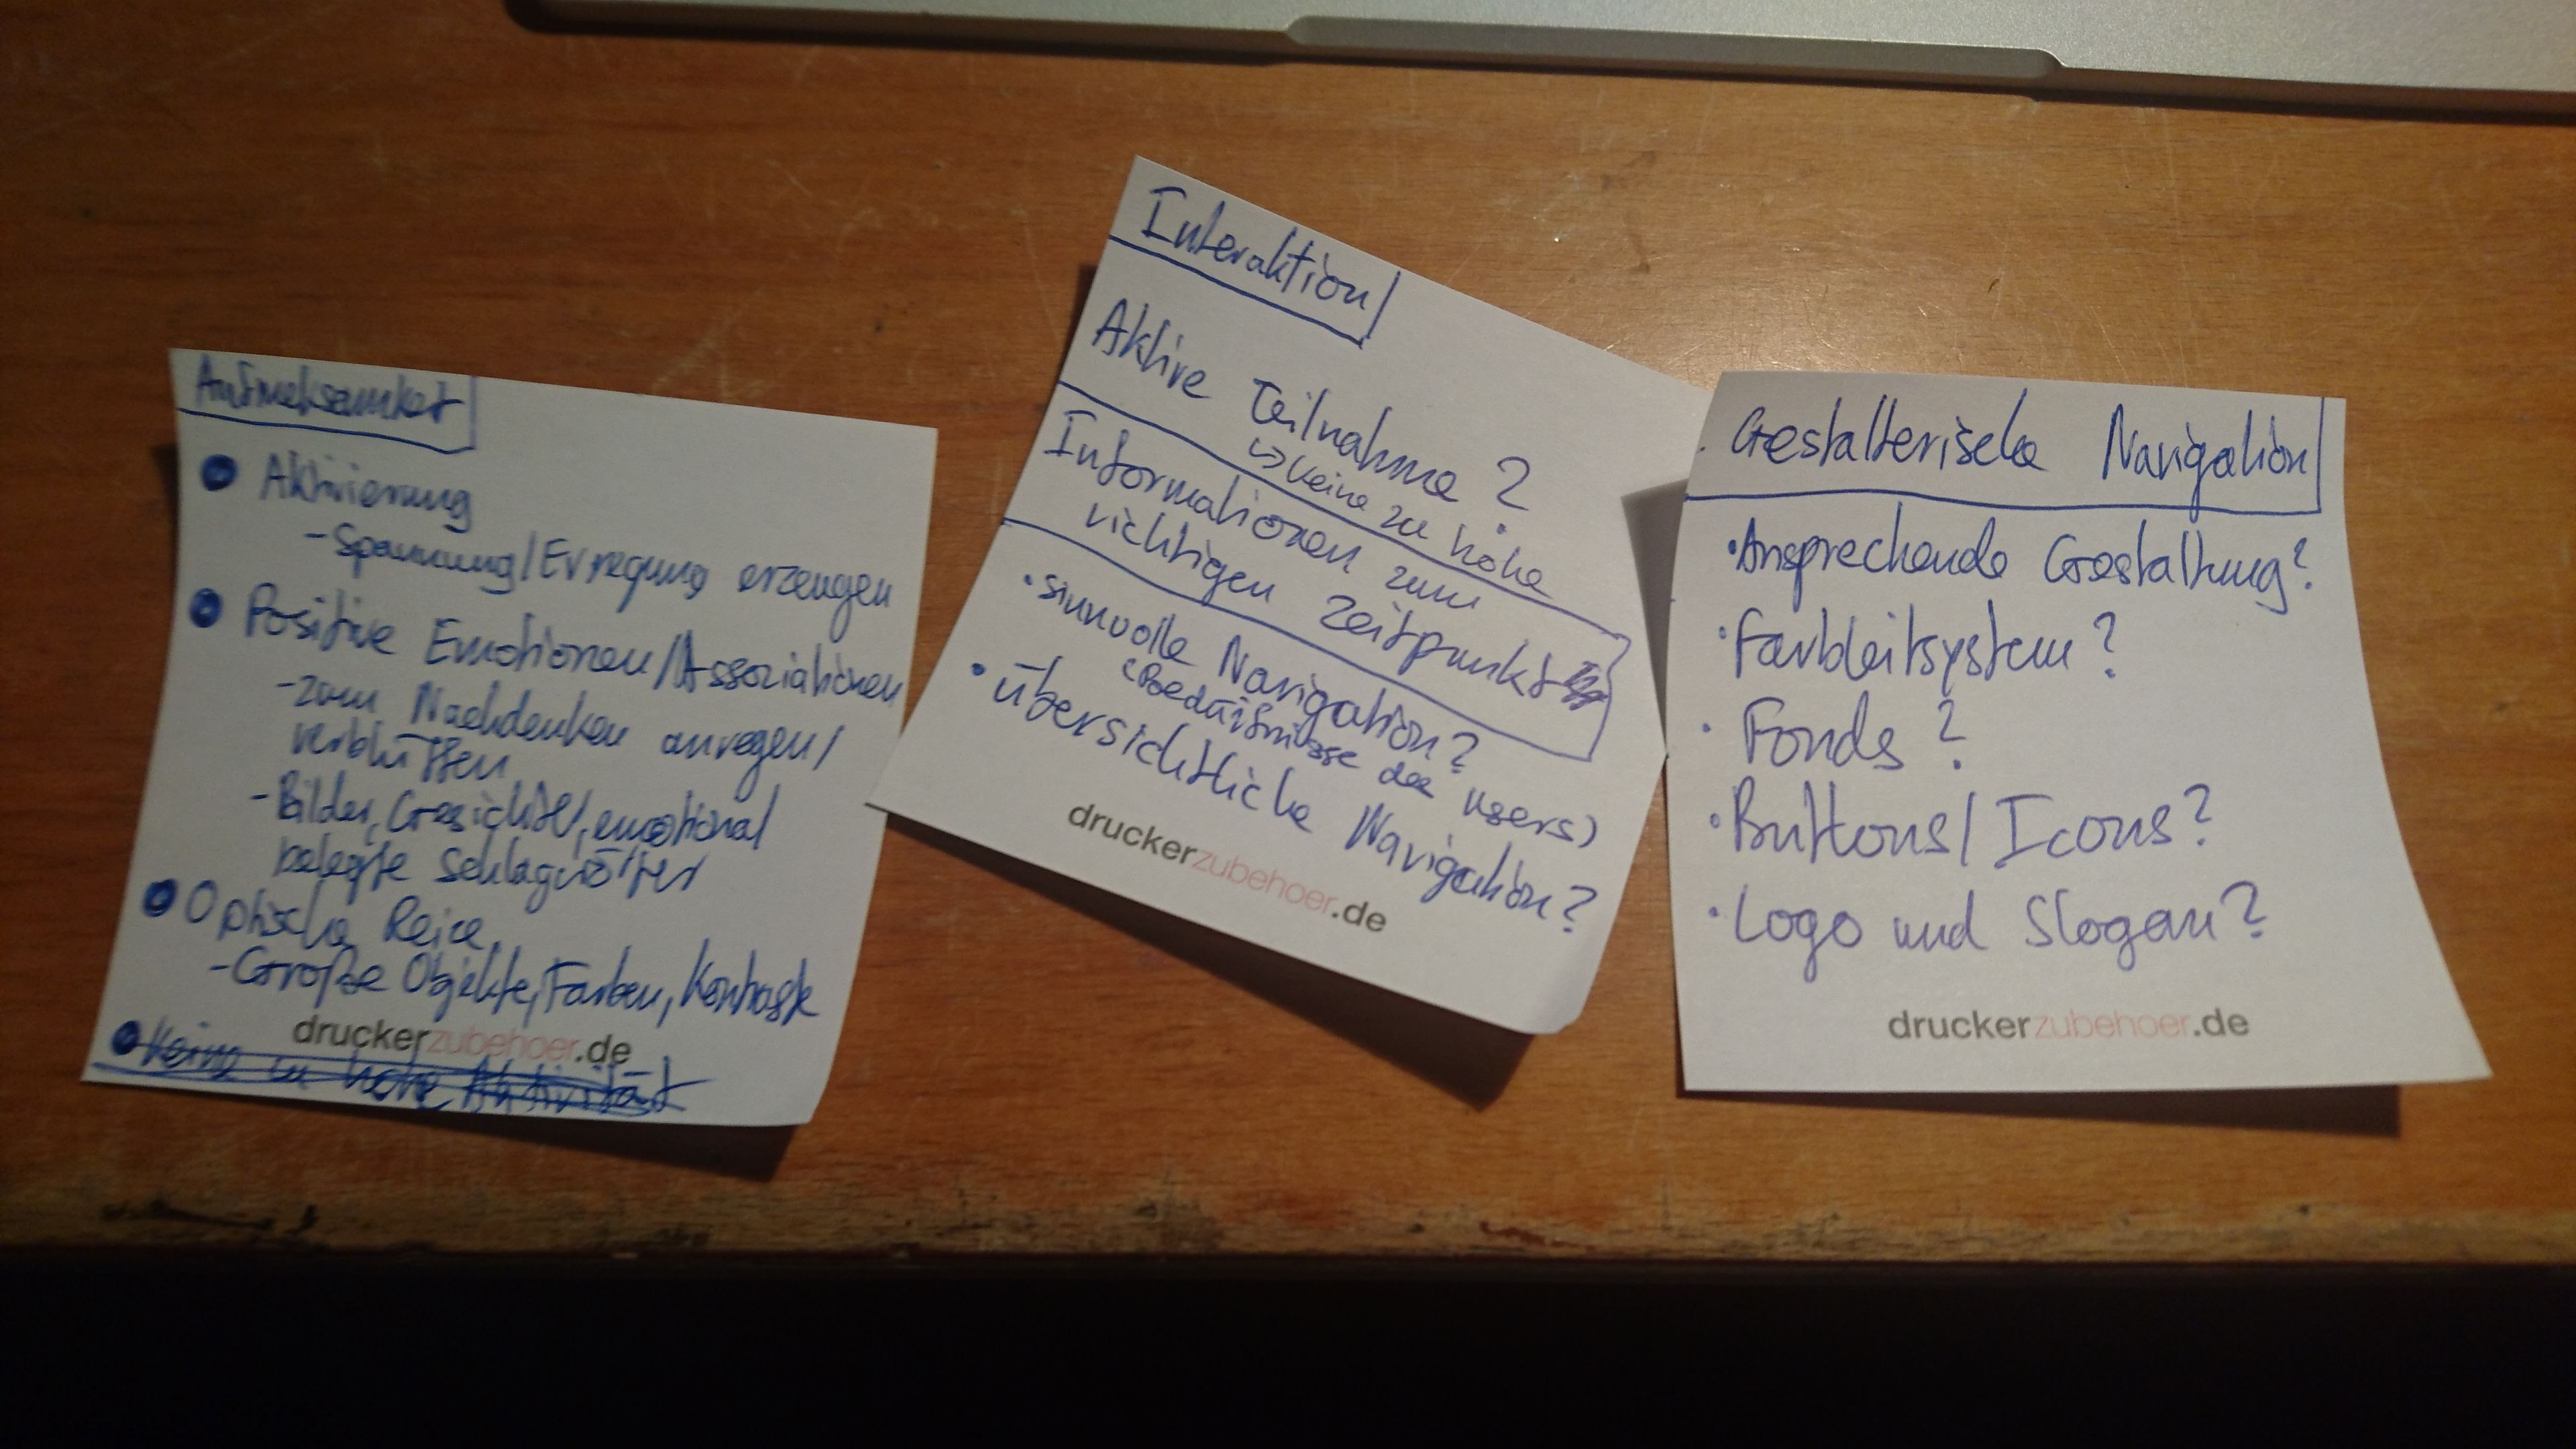 Aufmerksamkeit
• Aktivierung
- Spannung/Erregung erzeugen
• Positive Emotionen/Assoziationen
- zum Nachdenken anregen/
verblüffen
- Bilder, Gesichter, emotional
belegte Schlagwörter
• Optische Reize
- Große Objekte, Farben, Kontraste
druckerzubehoer.de
• Keine zu hohe Aktivität
Interaktion
Aktive Teilnahme?
↳ keine zu hohe
Informationen zum
richtigen Zeitpunkt
• sinnvolle Navigation?
(Bedürfnisse der Users)
• übersichtliche Navigation?
druckerzubehoer.de
Gestalterische Navigation
• Ansprechende Gestaltung?
• Farbleitsystem?
• Fonds?
• Buttons/Icons?
• Logo und Slogan?
druckerzubehoer.de